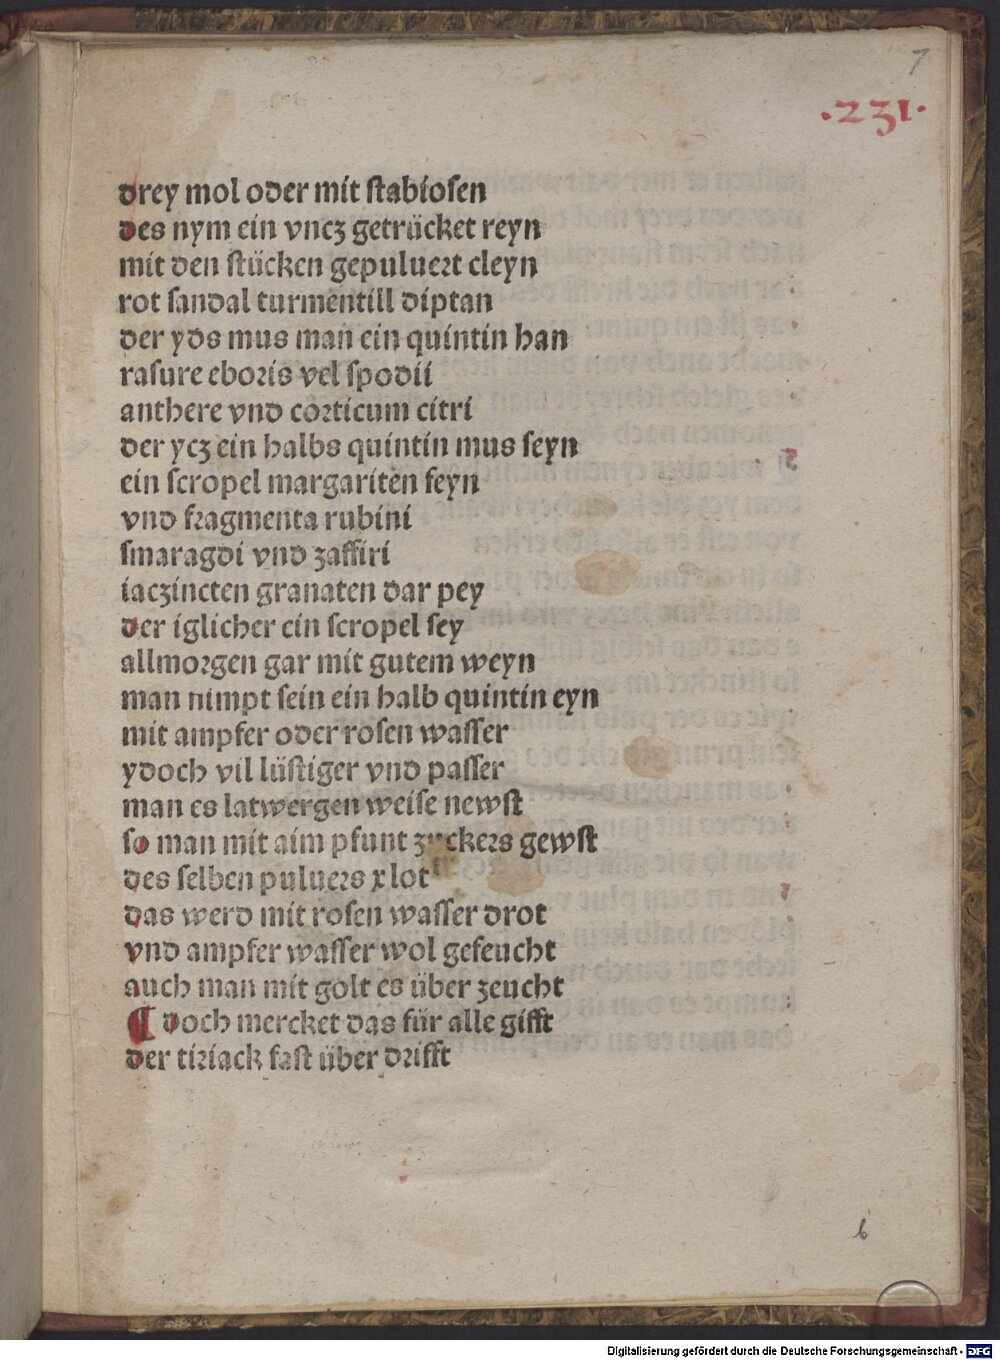 7
·231·
drey mol oder mit ſtabioſen
des nym ein vncz getrücket reyn
mit den ſtücken gepuluert cleyn
rot ſandal turmentill diptan
der yds mus man ein quintin han
raſure eboris vel ſpodii
anthere vnd corticum citri
der ycz ein halbs quintin mus ſeyn
ein ſcropel margariten feyn
vnd fragmenta rubini
ſmaragdi vnd zaffiri
iaczincten granaten dar pey
der iglicher ein ſcropel ſey
allmorgen gar mit gutem weyn
man nimpt ſein ein halb quintin eyn
mit ampfer oder roſen waſſer
ydoch vil lüſtiger vnd paſſer
man es latwergen weiſe newſt
so man mit aim pfunt zuckers gewſt
des ſelben puluers x lot
das werd mit roſen waſſer drot
vnd ampfer waſſer wol gefeucht
auch man mit golt es über zeucht
¶ doch mercket das für alle gifft
der tiriack faſt über drifft
b
Digitalisierung gefördert durch die Deutsche Forschungsgemeinschaft - DFG